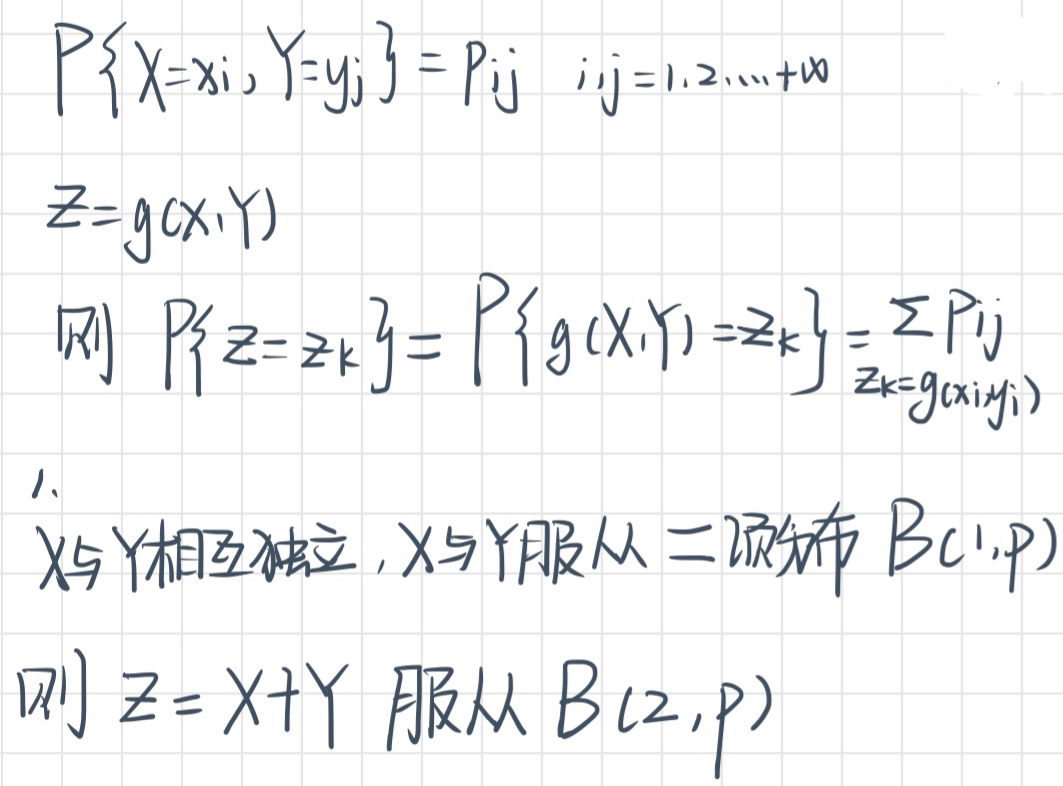 P{X=xi, Y=yj} = Pij  i,j=1.2....+∞
Z=g(X,Y)
则 P{Z=zk}= P{g(X,Y)=zk}=ΣPij
zk=g(xi,yj)
1.
X与Y相互独立,X与Y服从二项分布 B(1,p)
则 Z=X+Y 服从 B(2,p)